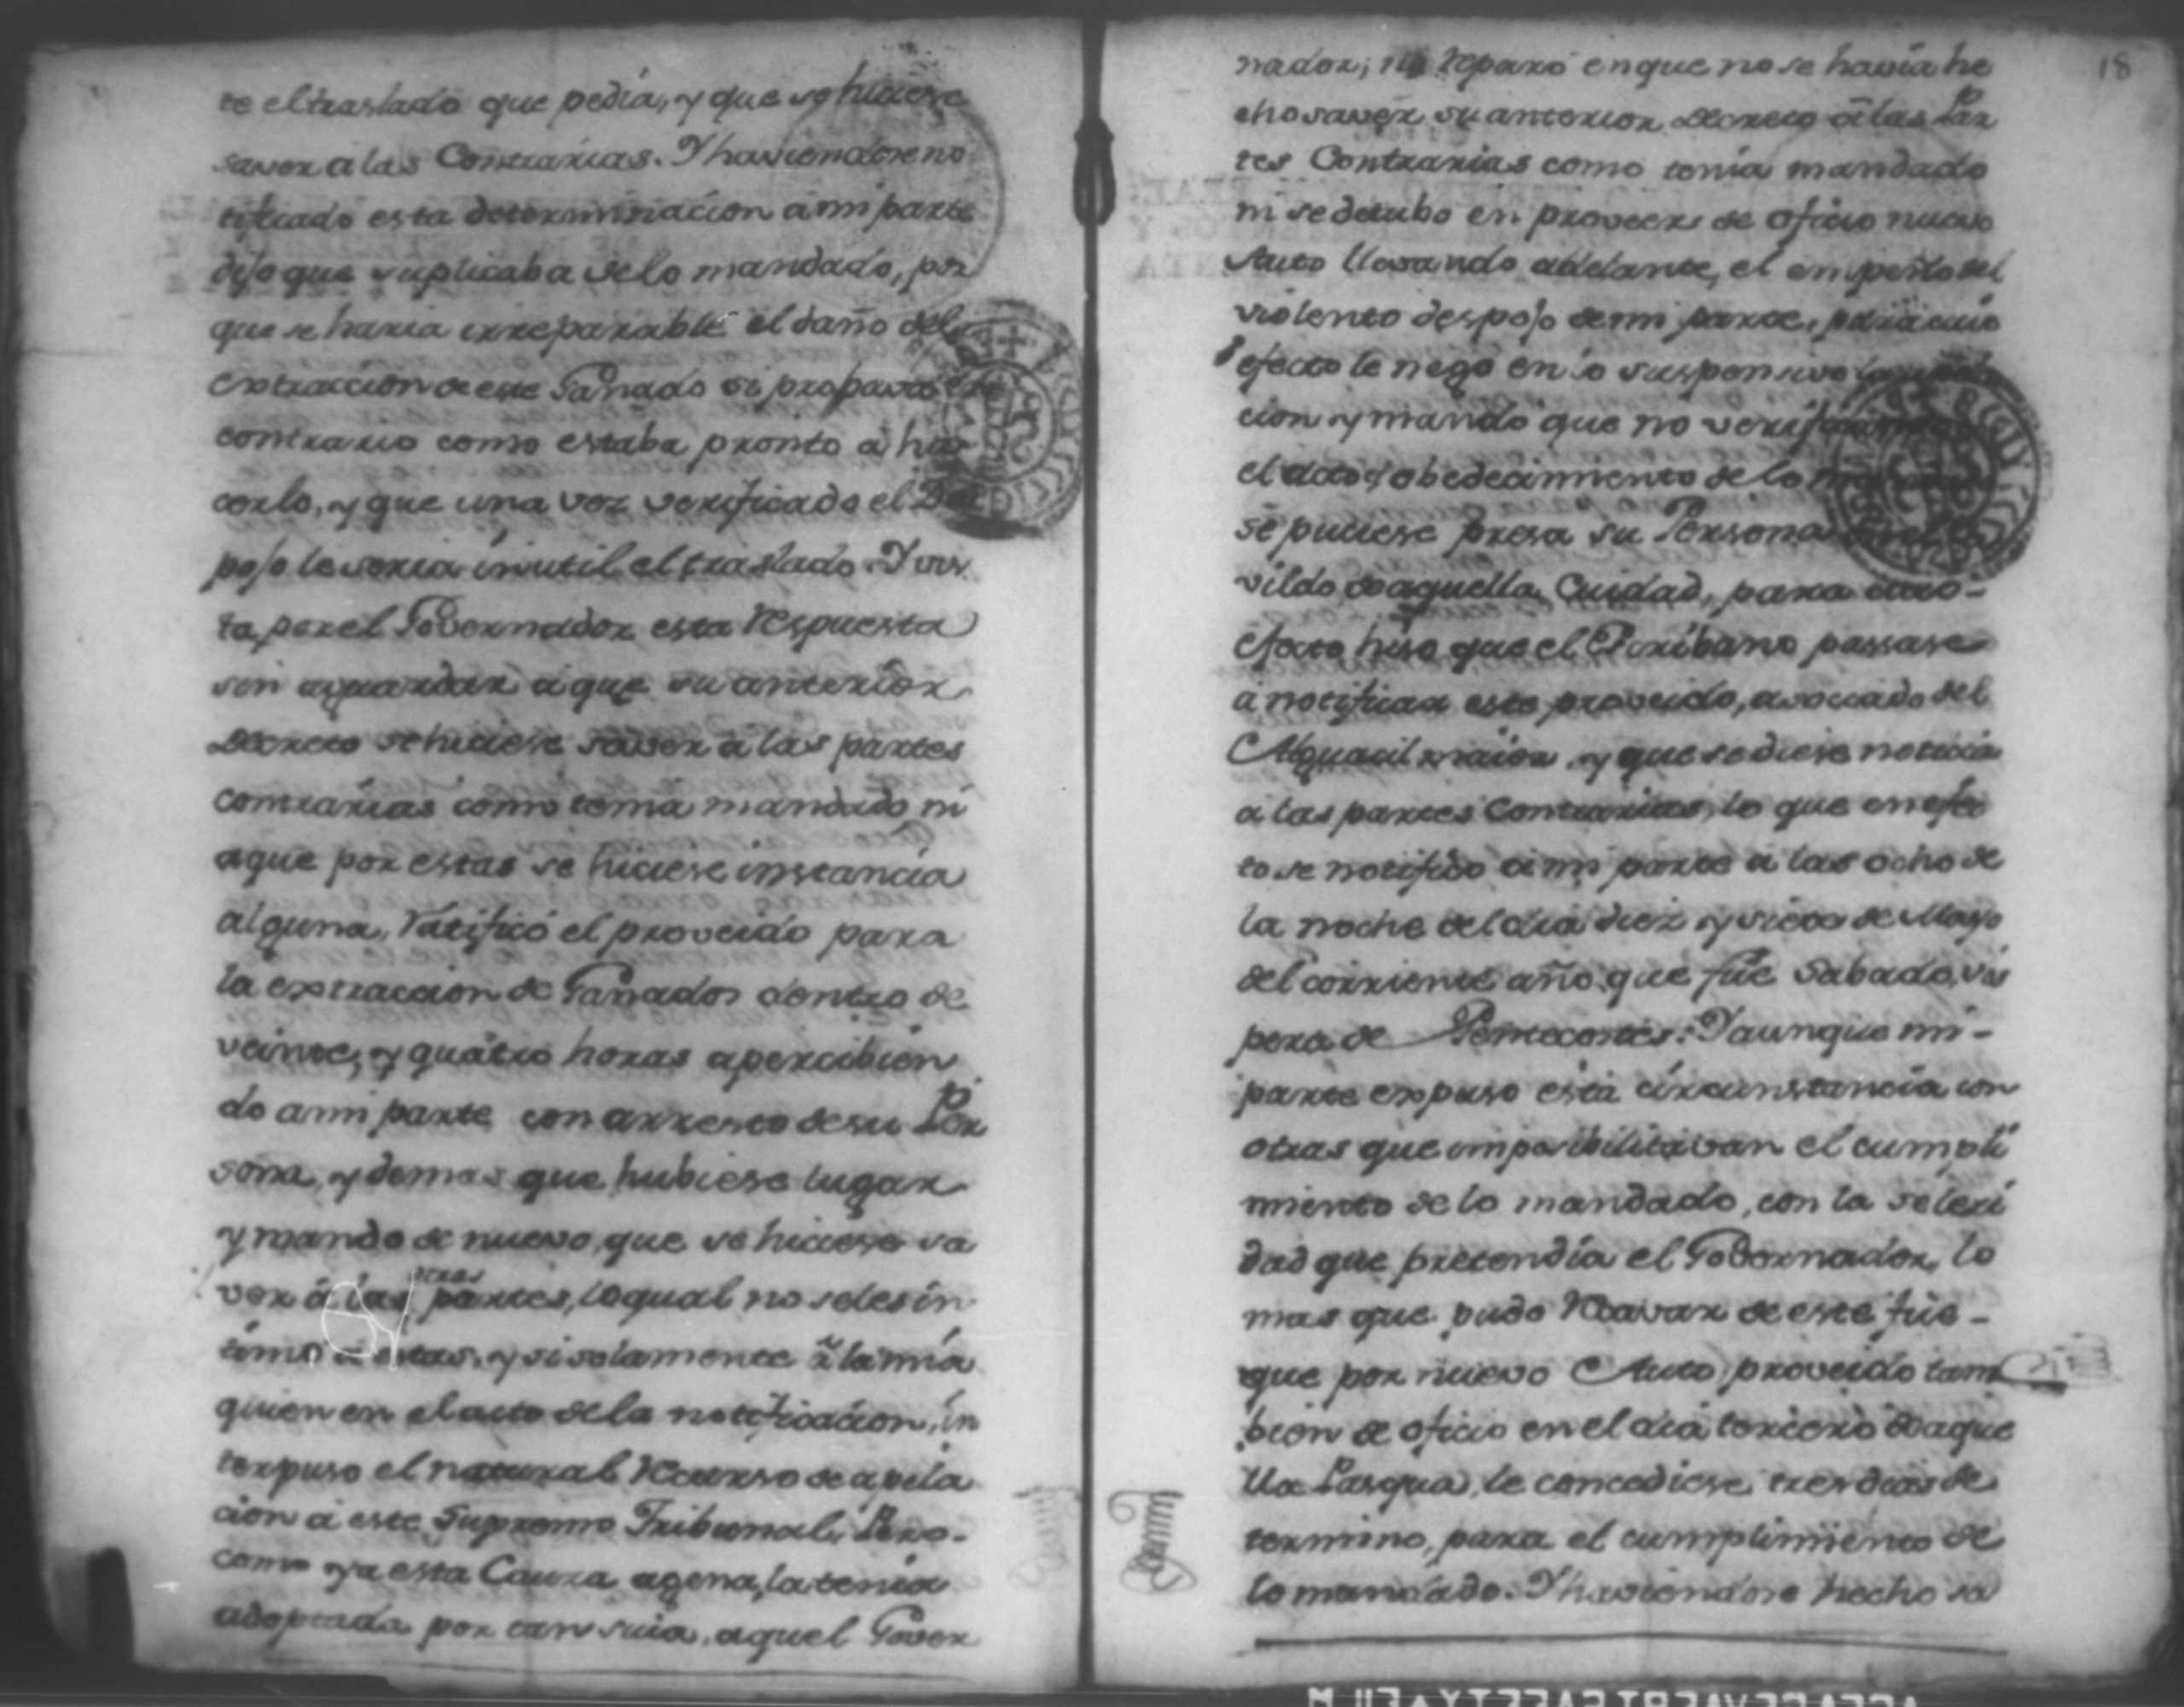 te el traslado que pedia, y que se hiciese
saver a las Contrarias. Y haviendose no
tificado esta determinacion à mi parte
dijo que suplicaba de lo mandado, por
que se haria irreparable el daño del
extraccion de este Ganado si probava
contrario como estaba pronto à ha
cerlo, y que una vez verificado el Des
pojo le seria inutil el traslado. Y vis
ta por el Governador esta respuesta
sin aguardar à que su anterior
Decreto se hiciese saver à las partes
contrarias como tenia mandado ni
a que por estas se hiciese instancia
alguna, ratificó el proveido para
la extraccion de Ganados dentro de
veinte, y quatro horas apercibien
do a mi parte con arresto de su Per
sona, y demas que hubiese lugar
y mando de nuevo que se hiciese sa
ver à las otras partes, lo qual no se les in
timó à estas, y si solamente à la mia
quien en el acto de la notificacion, in
terpuso el natural recurso de apela
cion à este Supremo Tribunal. Pero
como ya esta Causa agena, la tenia
adoptada por tan suia, aquel Gover
nador, ni reparó en que no se havia he
cho saver su anterior Decreto à las Par
tes Contrarias como tenia mandado
ni se detubo en proveer de oficio nuevo
Auto llevando adelante, el empeño del
violento despojo de mi parte, para cuio
efecto le negó en lo suspensivo la
cion y mandó que no verificando
el acto, y obedecimiento de lo
se pusiese presa su Persona
vildo de aquella Ciudad, para cuio
efecto hiso que el Escribano passase
à notificar este proveido, asociado del
Alguacil maior, y que se diese noticia
a las partes Contrarias, lo que en efec
to se notificó à mi parte à las ocho de
la noche del dia diez y siete de Mayo
del corriente año, que fue Sabado, vis
pera de Pentecostes. Y aunque mi
parte expuso esta circunstancia con
otras que imposibilitavan el cumpli
miento de lo mandado, con la seleri
dad que pretendia el Governador, lo
mas que pudo recavar de este fue
que por nuevo Auto proveido tam
bien de oficio en el dia tercero de aque
lla Pasqua, le concediese tres dias de
termino, para el cumplimiento de
lo mandado. Y haviendose hecho sa
18